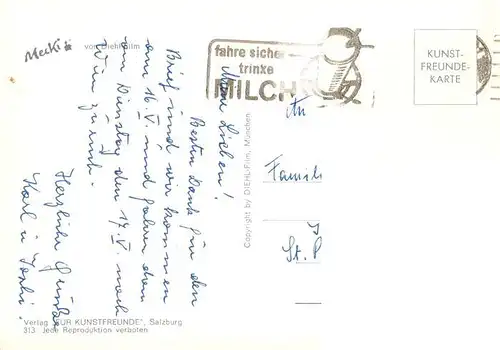 Mecki
vom Diehlfilm
fahre sicher
trinke
MILCH
KUNST-
FREUNDE-
KARTE
Meine Lieben!
Besten Dank für den
Brief und wir kommen
am 16. V. und fahren dann
am Dienstag den 17. V. nach
Wien zurück.
Herzliche Grüße
Karl u.
An
Famili
St. P
Copyright by DIEHL-Film, München
Verlag "FÜR KUNSTFREUNDE", Salzburg
313 Jede Reproduktion verboten